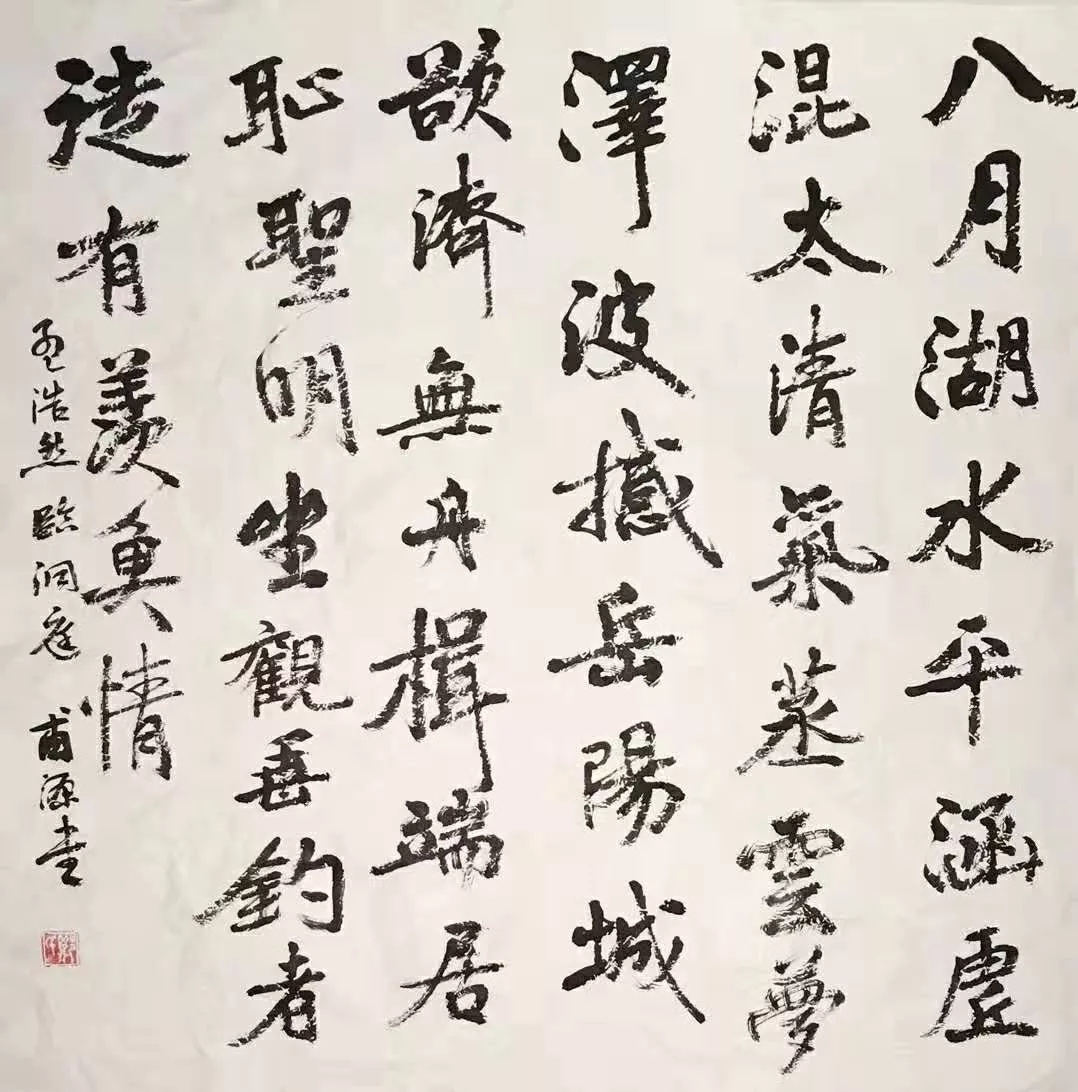 八月湖水平涵虛
混太清氣蒸雲夢
澤波撼岳陽城
欲濟無舟楫端居
恥聖明坐觀垂釣者
徒有羨魚情
孟浩然臨洞庭 甫源書